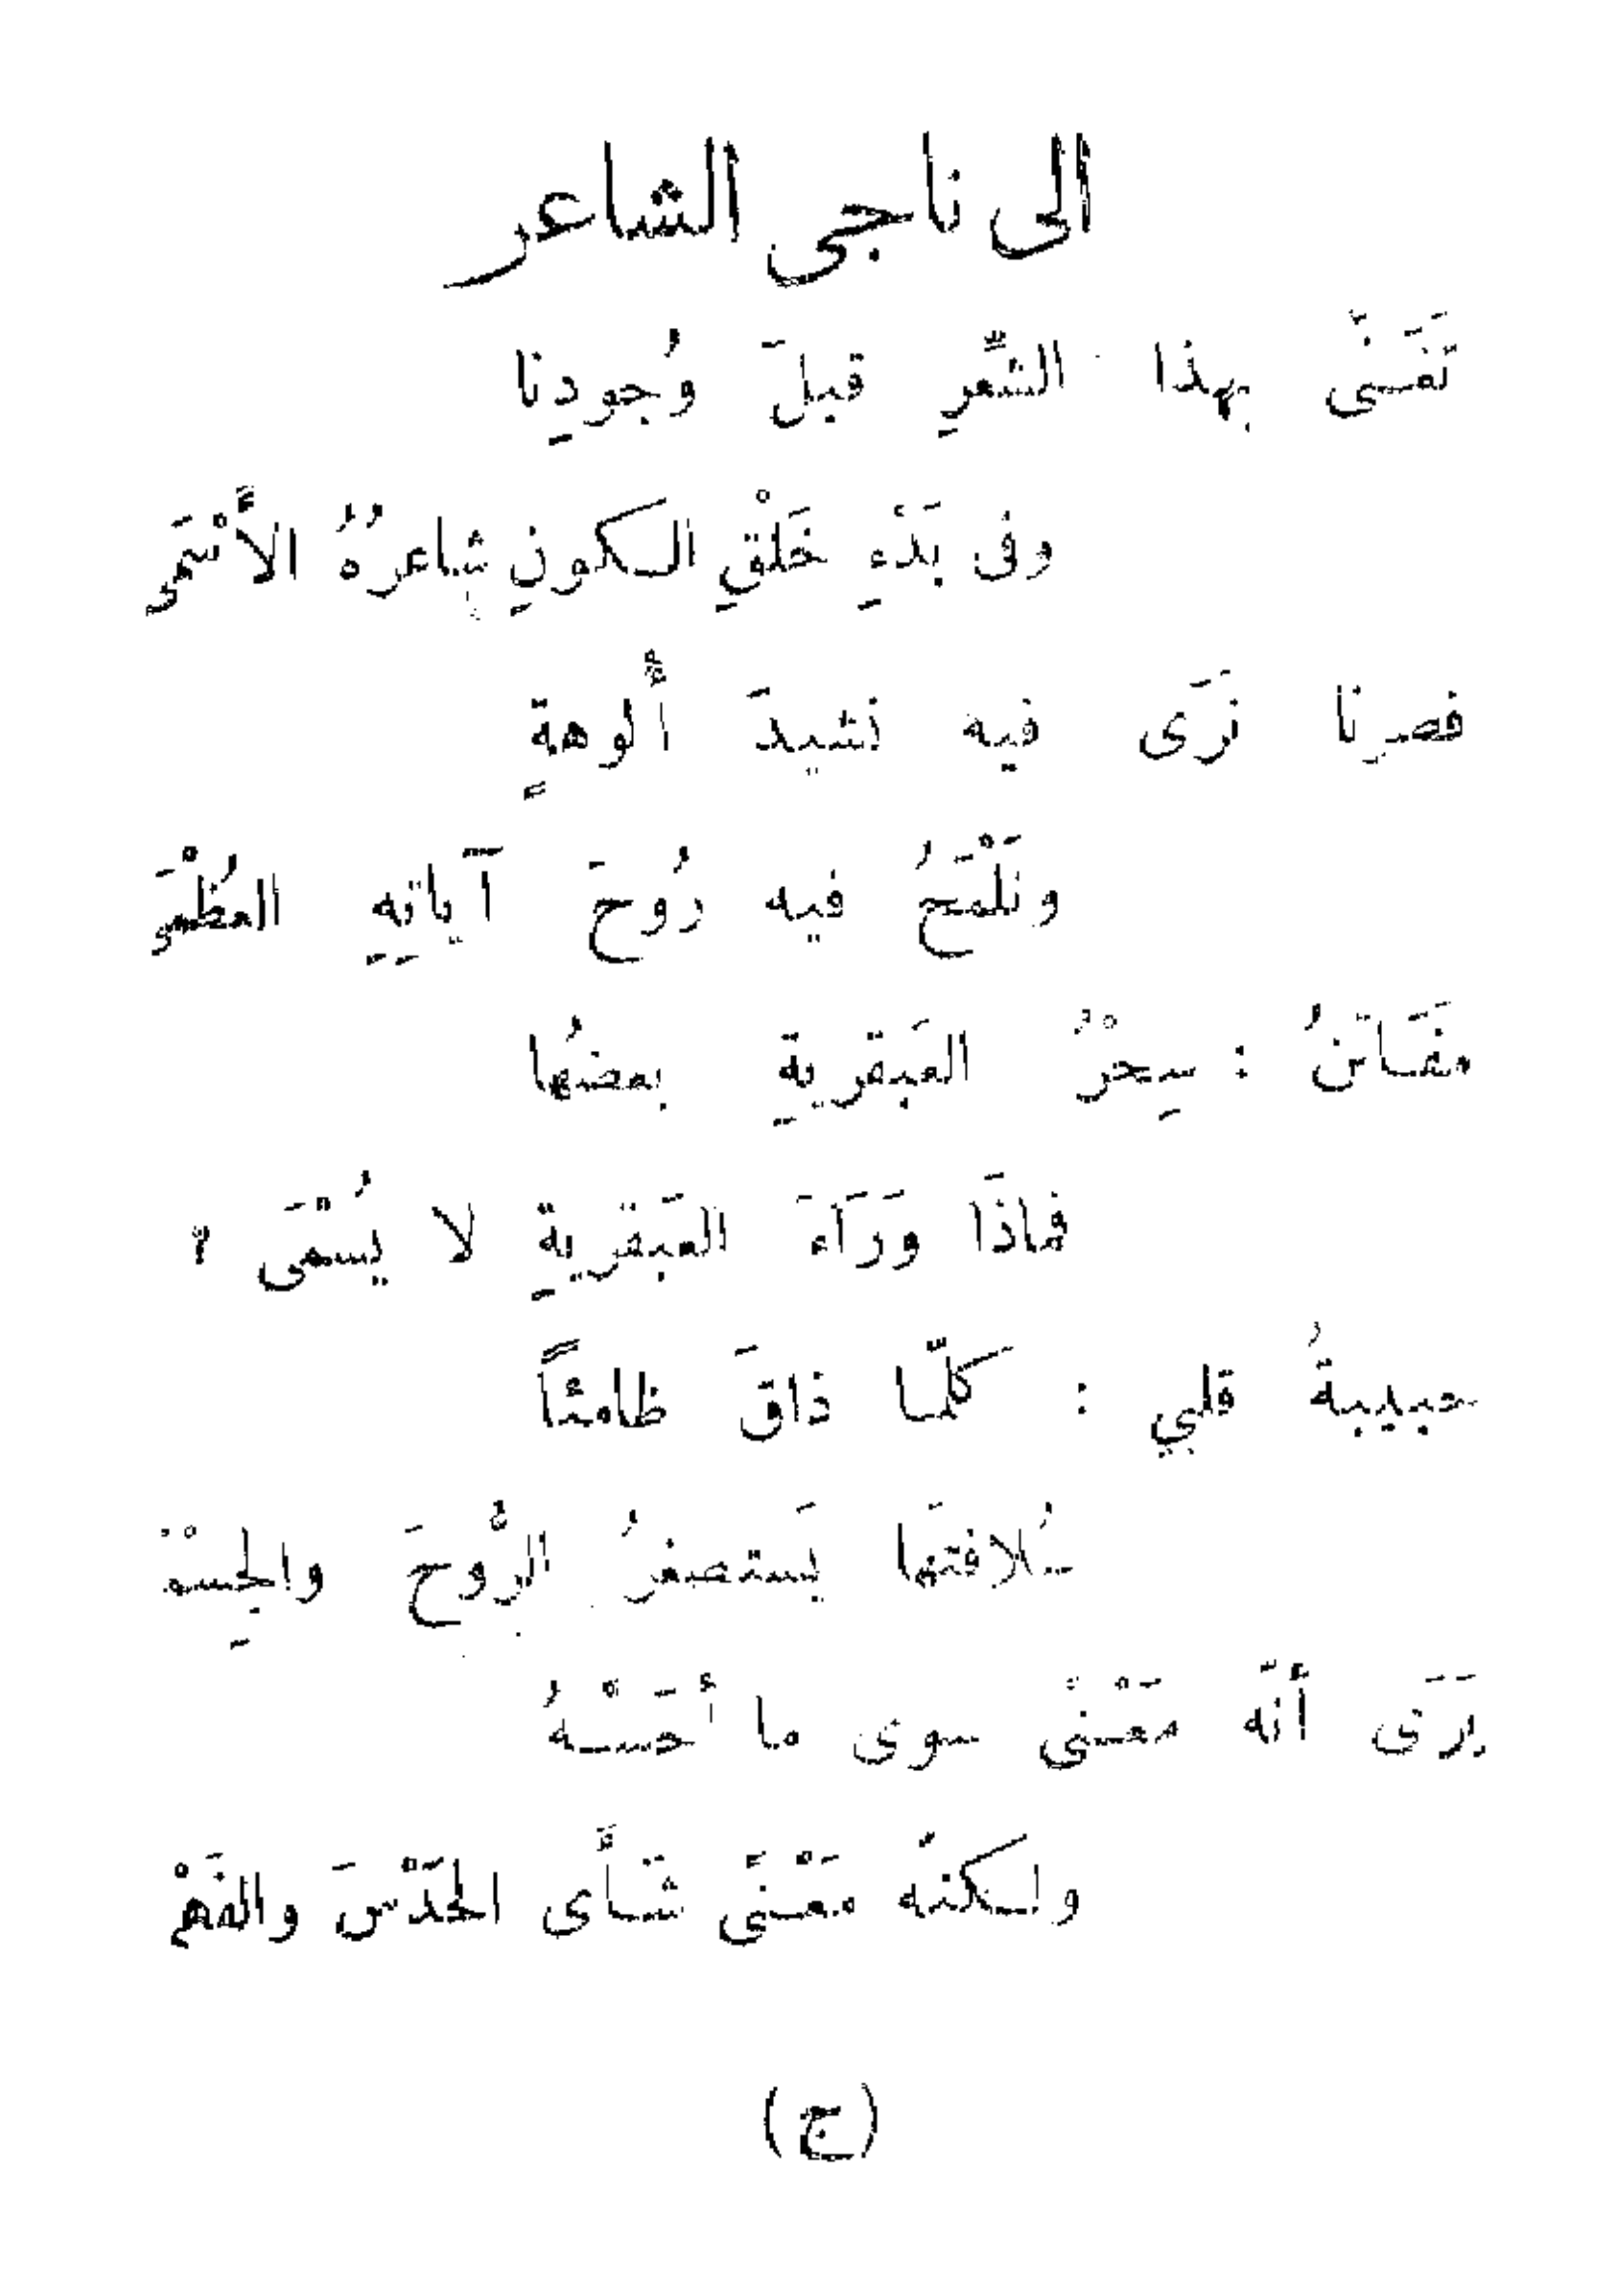 الى ناجى الشاعر
تَغَنَّى بهذا الشِّعرِ قبلَ وُجودِنا
وفى بَدْءِ خَلْقِ الكونِ شاعرُهُ الأَسْمَى
فصرنا نَرَى فيه نشيدَ أُلوهةٍ
ونَلْمَحُ فيه رُوحَ آياتِهِ العُظْمَى
مَفَاتنُ : سِحْرُ العَبقريةِ بعضُها
فماذَا وَرَاءَ العَبقريةِ لا يُسْمَى ؟
حبيبةُ قلبي : كلّما ذاقَ ظامئاً
سُلافتَها يَستصغرُ الرُّوحَ والجِسْمَ
يَرَى أنّه مَعْنًى سوى ما أحَسْهُ
ولكنّه مَعْنًى شَأَى الحَدْسَ والفَهْمَ
(ج)